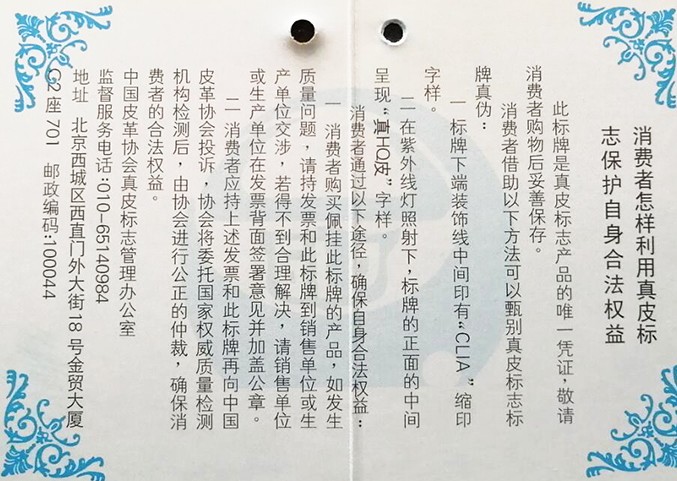 消费者怎样利用真皮标
志保护自身合法权益
此标牌是真皮标志产品的唯一凭证，敬请
消费者购物后妥善保存。
消费者借助以下方法可以甄别真皮标志标
牌真伪：
一 标牌下端装饰线中间印有“CLIA”缩印
字样。
二 在紫外线灯照射下，标牌的正面的中间
呈现“真HO皮”字样。
消费者通过以下途径，确保自身合法权益：
一 消费者购买佩挂此标牌的产品，如发生
质量问题，请持发票和此标牌到销售单位或生
产单位交涉，若得不到合理解决，请销售单位
或生产单位在发票背面签署意见并加盖公章。
二 消费者应持上述发票和此标牌再向中国
皮革协会投诉，协会将委托国家权威质量检测
机构检测后，由协会进行公正的仲裁，确保消
费者的合法权益。
中国皮革协会真皮标志管理办公室
监督服务电话：010-65140984
地址 北京西城区西直门外大街18号金贸大厦
C2座701 邮政编码：100044